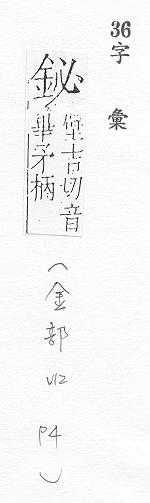 36字彙
鉍
堡吉切音
畢矛柄
(金部 vl2 P4)